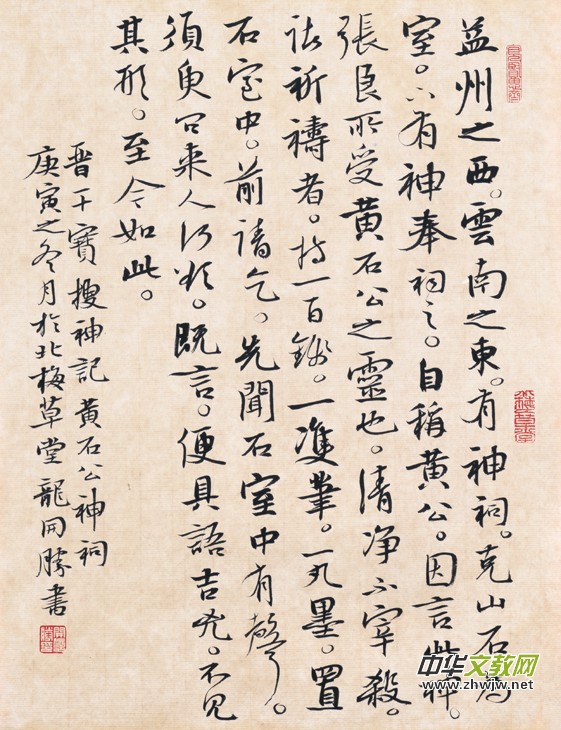 益州之西。雲南之東。有神祠。克山石為
室。下有神奉祠之。自稱黄公。因言此神。
張良所受黄石公之靈也。清净不宰殺。
諸祈禱者。持一百錢。一雙筆。一丸墨。置
石室中。前請乞。先聞石室中有聲。
須臾問来人何欲。既言。便具語吉凶。不見
其形。至今如此。
晋干寶搜神記黄石公神祠
庚寅之冬月於北梅草堂龍開勝書
中华文教网
www.zhwjw.net